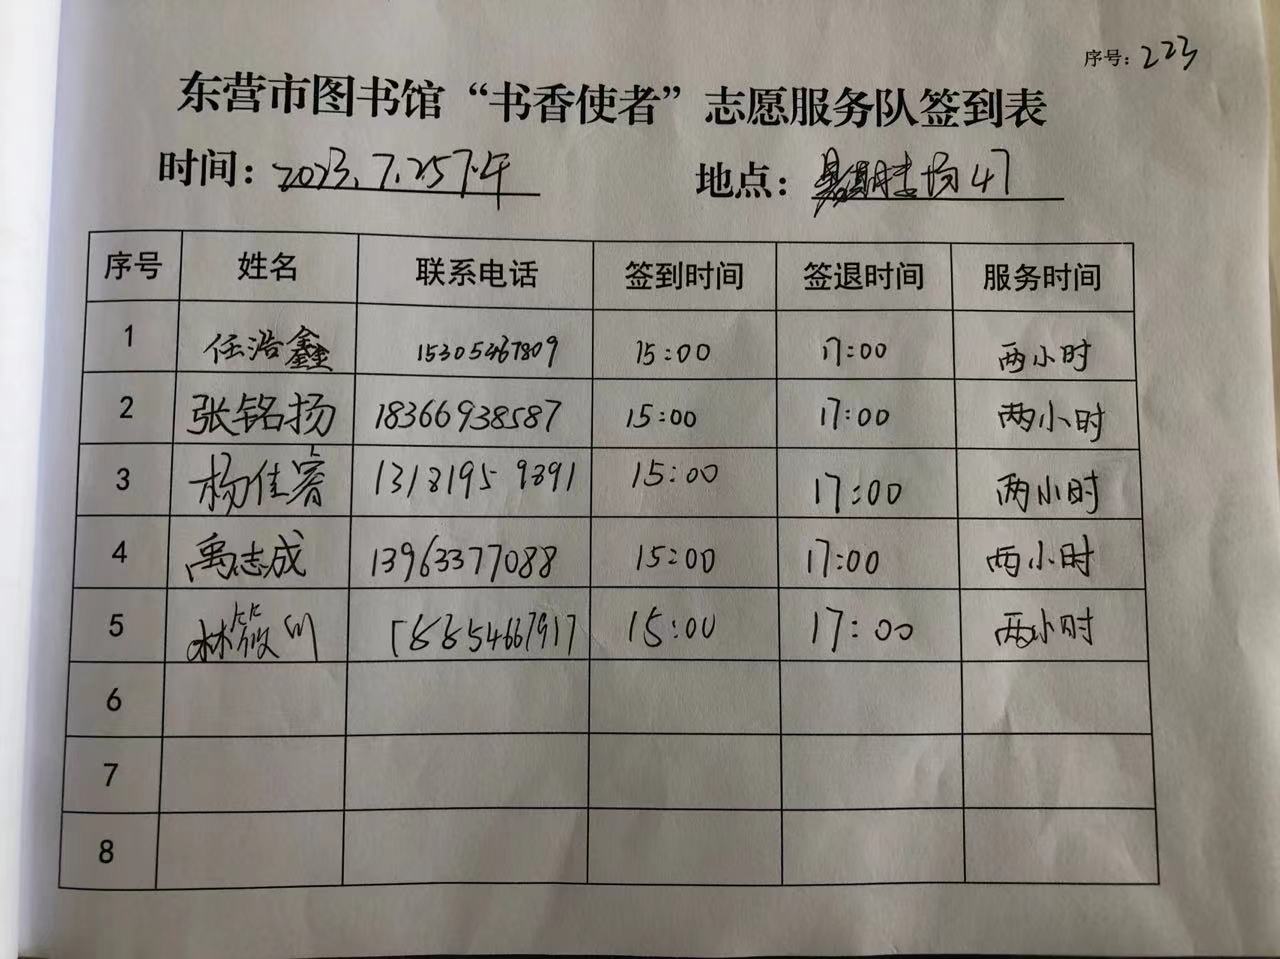 序号：223
东营市图书馆“书香使者”志愿服务队签到表
时间：2023.7.25下午 地点：
序号 姓名 联系电话 签到时间 签退时间 服务时间
1 任浩鑫 15305467809 15:00 17:00 两小时
2 张铭扬 18366938587 15:00 17:00 两小时
3 杨佳睿 13181959391 15:00 17:00 两小时
4 禹志成 13963377088 15:00 17:00 两小时
5 林筱 15:00 17:00 两小时
6
7
8